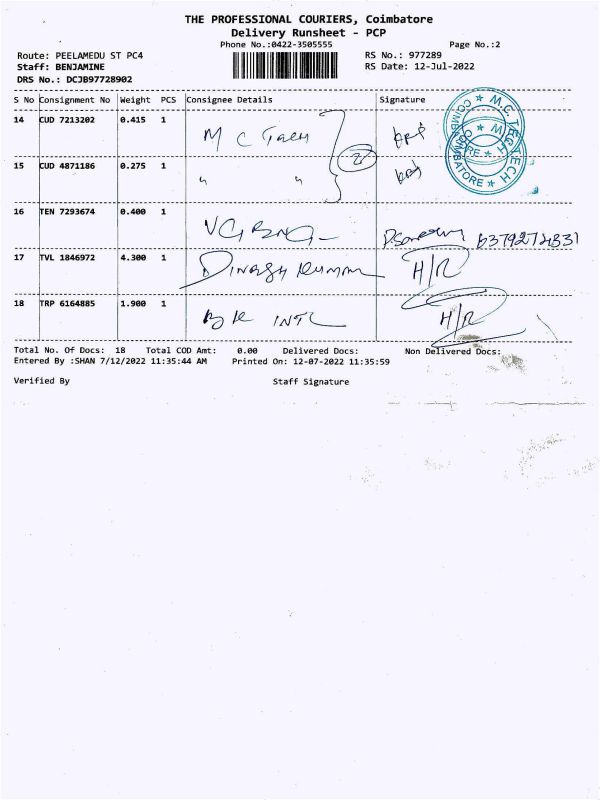 THE PROFESSIONAL COURIERS, Coimbatore
Delivery Runsheet - PCP
Phone No.:0422-3505555 Page No.:2
Route: PEELAMEDU ST PC4 RS No.: 977289
Staff: BENJAMINE RS Date: 12-Jul-2022
DRS No.: DCJB97728902
S No Consignment No Weight PCS Consignee Details Signature
14 CUD 7213202 0.415 1 M C Tech
15 CUD 4871186 0.275 1 " "
2
M.C. TEC TECH
COIMBATORE
16 TEN 7293674 0.400 1
17 TVL 1846972 4.300 1 Dinash Kumar H/R
18 TRP 6164885 1.900 1 BK INTL H/R
Total No. Of Docs: 18 Total COD Amt: 0.00 Delivered Docs: Non Delivered Docs:
Entered By :SHAN 7/12/2022 11:35:44 AM Printed On: 12-07-2022 11:35:59
Verified By Staff Signature